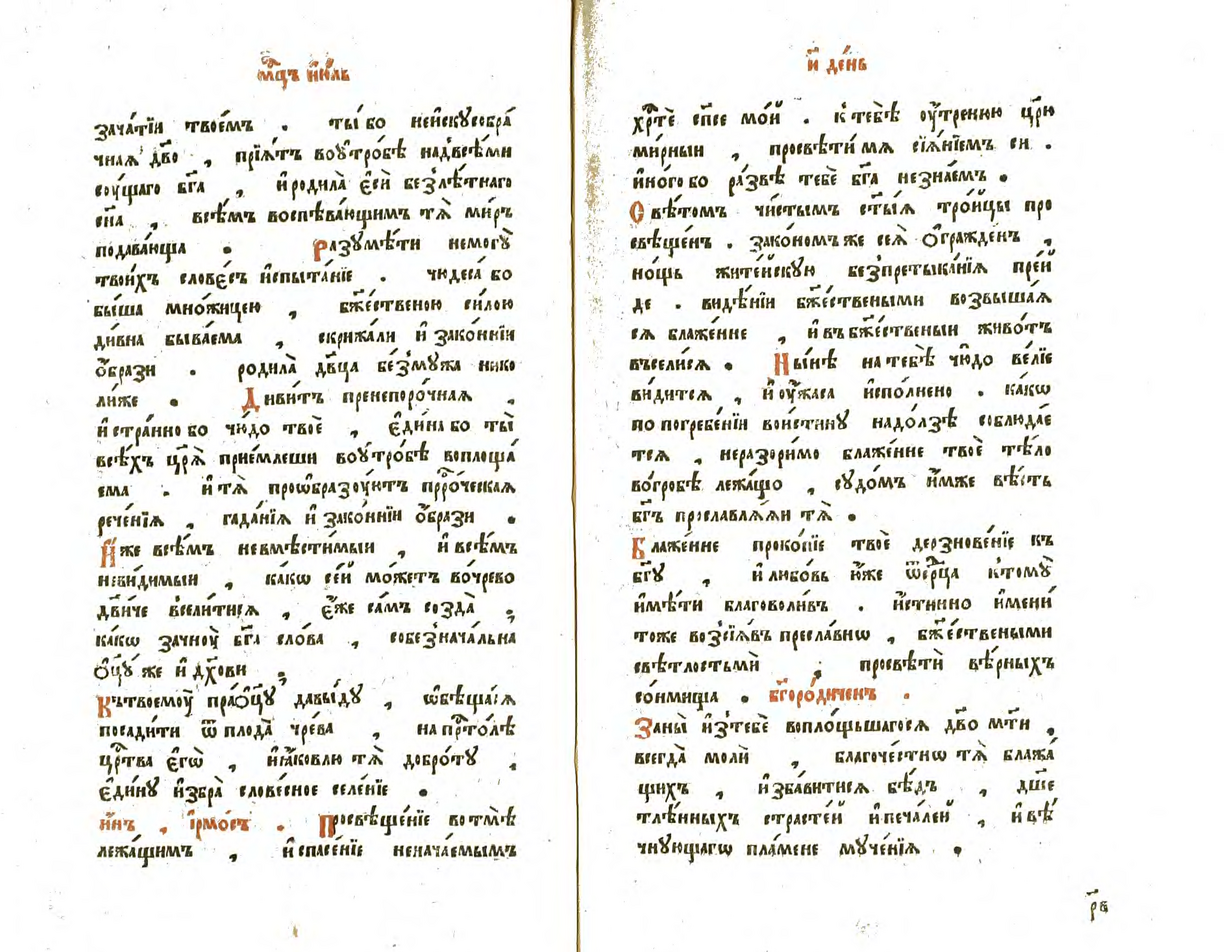 мⷭ҇цъ і҆ю́ль
зача́тїи твое́мъ . ты́ бо неи҆скꙋсобра́
чнаѧ дв҃о , прїѧ́тъ воѹ҆тро́бѣ надъвсѣ́ми
сѹ́щаго бг҃а , и҆родила̀ є҆сѝ безлѣ́тнаго
сн҃а , всѣ́мъ воспѣва́ющимъ тѧ̀ ми́ръ
подава́юща . Разꙋмѣ́ти немогꙋ̀
твои́хъ слове́съ и҆спыта́нїе . чюдеса́ бо
бы́ша мно́жицею , бж҃е́ственою си́лою
ди́вна быва́ема , скрижа́ли и҆ зако́ннїи
ѻ҆́брази . родила̀ дв҃ца безмꙋ́жа нико
ли́же . Диви́тъ пренепоро́чнаѧ ,
и҆ стра́нно бо чю́до твоѐ , є҆ди́на бо ты̀
всѣ́хъ цр҃ѧ̀ прие́млеши воѹ҆тро́бѣ воплоща́
ема . и҆ тѧ̀ проѡбразѹ́итъ прⷪ҇ро́ческаѧ
рече́нїѧ , гада́нїѧ и҆ зако́ннїи ѻ҆́брази .
И҆́же всѣ́мъ невмѣсти́мыи , и҆ всѣ́мъ
неви́димыи , ка́кѡ се́й мо́жетъ во́чрево
дв҃и́че всели́тисѧ , є҆́же са́мъ созда̀ ;
ка́кѡ зачнѹ̀ бг҃а сло́ва , собезнача́льна
ѻ҆ц҃ꙋ́ же и҆ дх҃ови ;
Къ твоемѹ̀ праѻц҃ꙋ̀ давы́дꙋ , ѡ҆бѣща́сѧ
посади́ти ѿ плода̀ чре́ва , на прⷭ҇то́лѣ
црⷭ҇тва є҆гѡ̀ , и҆ і҆а́ковлю тѧ̀ добро́тꙋ ,
є҆ди́нꙋ и҆збра̀ слове́сное селе́нїе .
и҆́нъ , і҆рмо́съ . Просвѣще́нїе во тмѣ̀
лежа́щимъ , и҆ спасе́нїе нена́чаемымъ
и҃ де́нь
хрⷭ҇тѐ сп҃се мо́й . к тебѣ̀ ѹ҆́тренюю цр҃ю
ми́рныи , просвѣти́ мѧ сїѧ́нїемъ си .
и҆но́го бо ра́звѣ тебѐ бг҃а незна́емъ .
Свѣ́томъ чи́стымъ ст҃ы́ѧ тро́ицы про
свѣще́нъ . зако́номъ же сеѧ̀ ѻ҆гражде́нъ ,
но́щь жите́йскꙋю безпретыка́нїѧ пре́й
де . видѣ́нїи бж҃е́ствеными возвыша́ѧ
сѧ блаже́нне , и҆ въ бж҃е́ственыи живо́тъ
въсели́сѧ . Ны́нѣ на тебѣ̀ чю́до ве́лїе
ви́дитсѧ , и҆ ѹ҆́жаса и҆спо́лнено . ка́кѡ
по погребе́нїи вои́стинꙋ надо́лзѣ соблюда́е
тсѧ , неразори́мо блаже́нне твоѐ тѣ́ло
во́гробѣ лежа́що , сꙋдо́мъ и҆́мже вѣ́сть
бг҃ъ прославлѧ́ѧи тѧ̀ .
Блаже́нне проко́пїе твоѐ дерзнове́нїе къ
бг҃ꙋ , и҆ любо́вь ю҆́же ѿсрⷣца к томꙋ̀
и҆мѣ́ти благоволи́въ . и҆́стинно и҆мени́
тоже возсїѧ́въ пресла́внѡ , бж҃е́ствеными
свѣ́тлостьми , просвѣтѝ вѣ́рныхъ
со́нмища . бг҃оро́диченъ .
Заны̀ и҆зтебѐ вопло́щьшагосѧ дв҃о мт҃и ,
всегда̀ молѝ , благоче́стнѡ тѧ̀ блажа́
щихъ , и҆зба́витисѧ бѣ́дъ , дш҃е
тлѣ́нныхъ страсте́й и҆ печа́лей , и҆ вѣ́
чнꙋющагѡ пла́мене мꙋче́нїѧ .